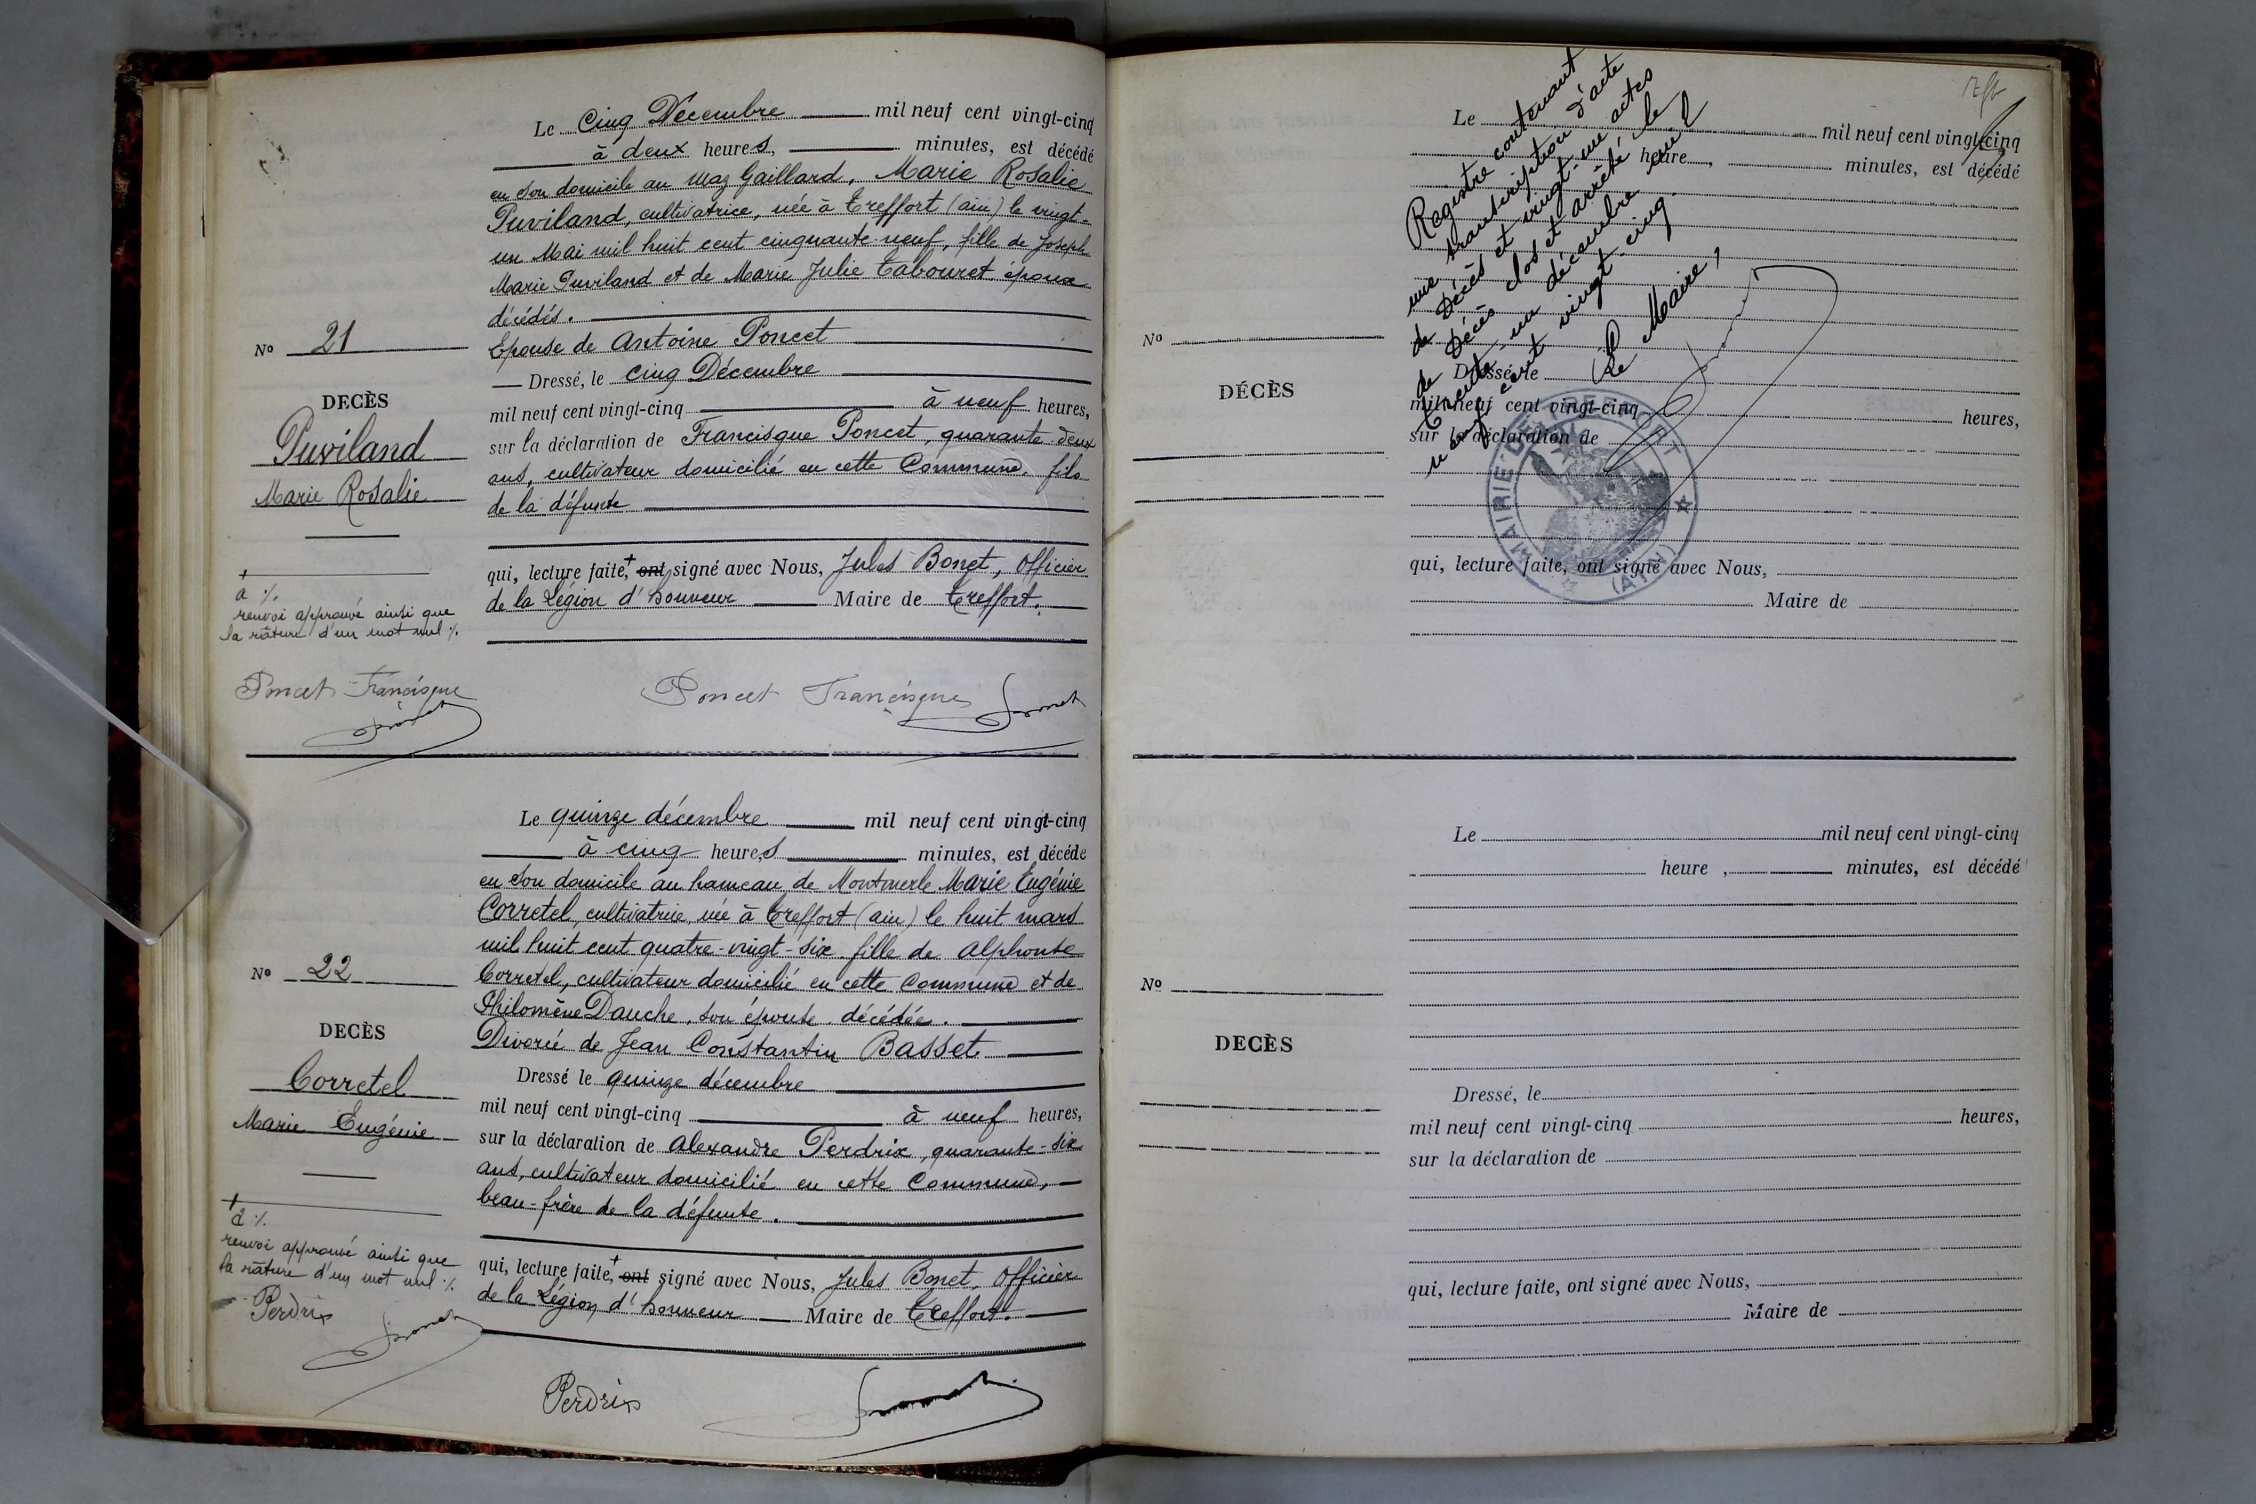 Le cinq Décembre mil neuf cent vingt-cinq
à deux heures, minutes, est décédé
en son domicile au Maz Gaillard, Marie Rosalie
Puviland, cultivatrice, née à Treffort (ain) le vingt-
un Mai mil huit cent cinquante-neuf, fille de Joseph
Marie Puviland et de Marie Julie Tabouret époux
décédés.
Epouse de Antoine Poncet
Dressé, le cinq Décembre
mil neuf cent vingt-cinq à neuf heures,
sur la déclaration de Francisque Poncet, quarante-deux
ans, cultivateur domicilié en cette Commune, fils
de la défunte
qui, lecture faite,+ ont signé avec Nous, Jules Bonet, Officier
de la Légion d'honneur Maire de Treffort.
No 21
DECÈS
Puviland
Marie Rosalie
+
a %.
renvoi approuvé ainsi que
la râture d'un mot nul %.
Poncet Francisque
Poncet Francisque JBonet
Le quinze décembre mil neuf cent vingt-cinq
à cinq heure,s minutes, est décéde
en son domicile au hameau de Montmerle Marie Eugénie
Corretel, cultivatrice, née à Treffort (ain) le huit mars
mil huit cent quatre-vingt-six fille de Alphonse
Corretel, cultivateur domicilié en cette Commune et de
Philomène Dauche, son épouse décédée.
Divorcé de Jean Constantin Basset
Dressé le quinze décembre
mil neuf cent vingt-cinq à neuf heures,
sur la déclaration de Alexandre Perdrix, quarante-six
ans, cultivateur domicilié en cette Commune,
beau-frère de la défunte.
qui, lecture faite,+ ont signé avec Nous, Jules Bonet, Officier
de la Légion d'honneur Maire de Treffort.
No 22
DECÈS
Corretel
Marie Eugénie
+
a %.
renvoi approuvé ainsi que
la râture d'un mot nul %.
Perdrix
Perdrix
Le mil neuf cent vingt-cinq
heure , minutes, est décédé
No
DÉCÈS
Dressé, le
mil neuf cent vingt-cinq heures,
sur la déclaration de
qui, lecture faite, ont signé avec Nous,
Maire de
Registre contenant
une transcription d'acte
de Décès et vingt-un actes
de Décès clos et arrêté le
trente-un décembre mil
neuf cent vingt-cinq.
Le Maire,
MAIRIE DE TREFFORT
(AIN)
Le mil neuf cent vingt-cinq
heure , minutes, est décédé
No
DECÈS
Dressé, le
mil neuf cent vingt-cinq heures,
sur la déclaration de
qui, lecture faite, ont signé avec Nous,
Maire de